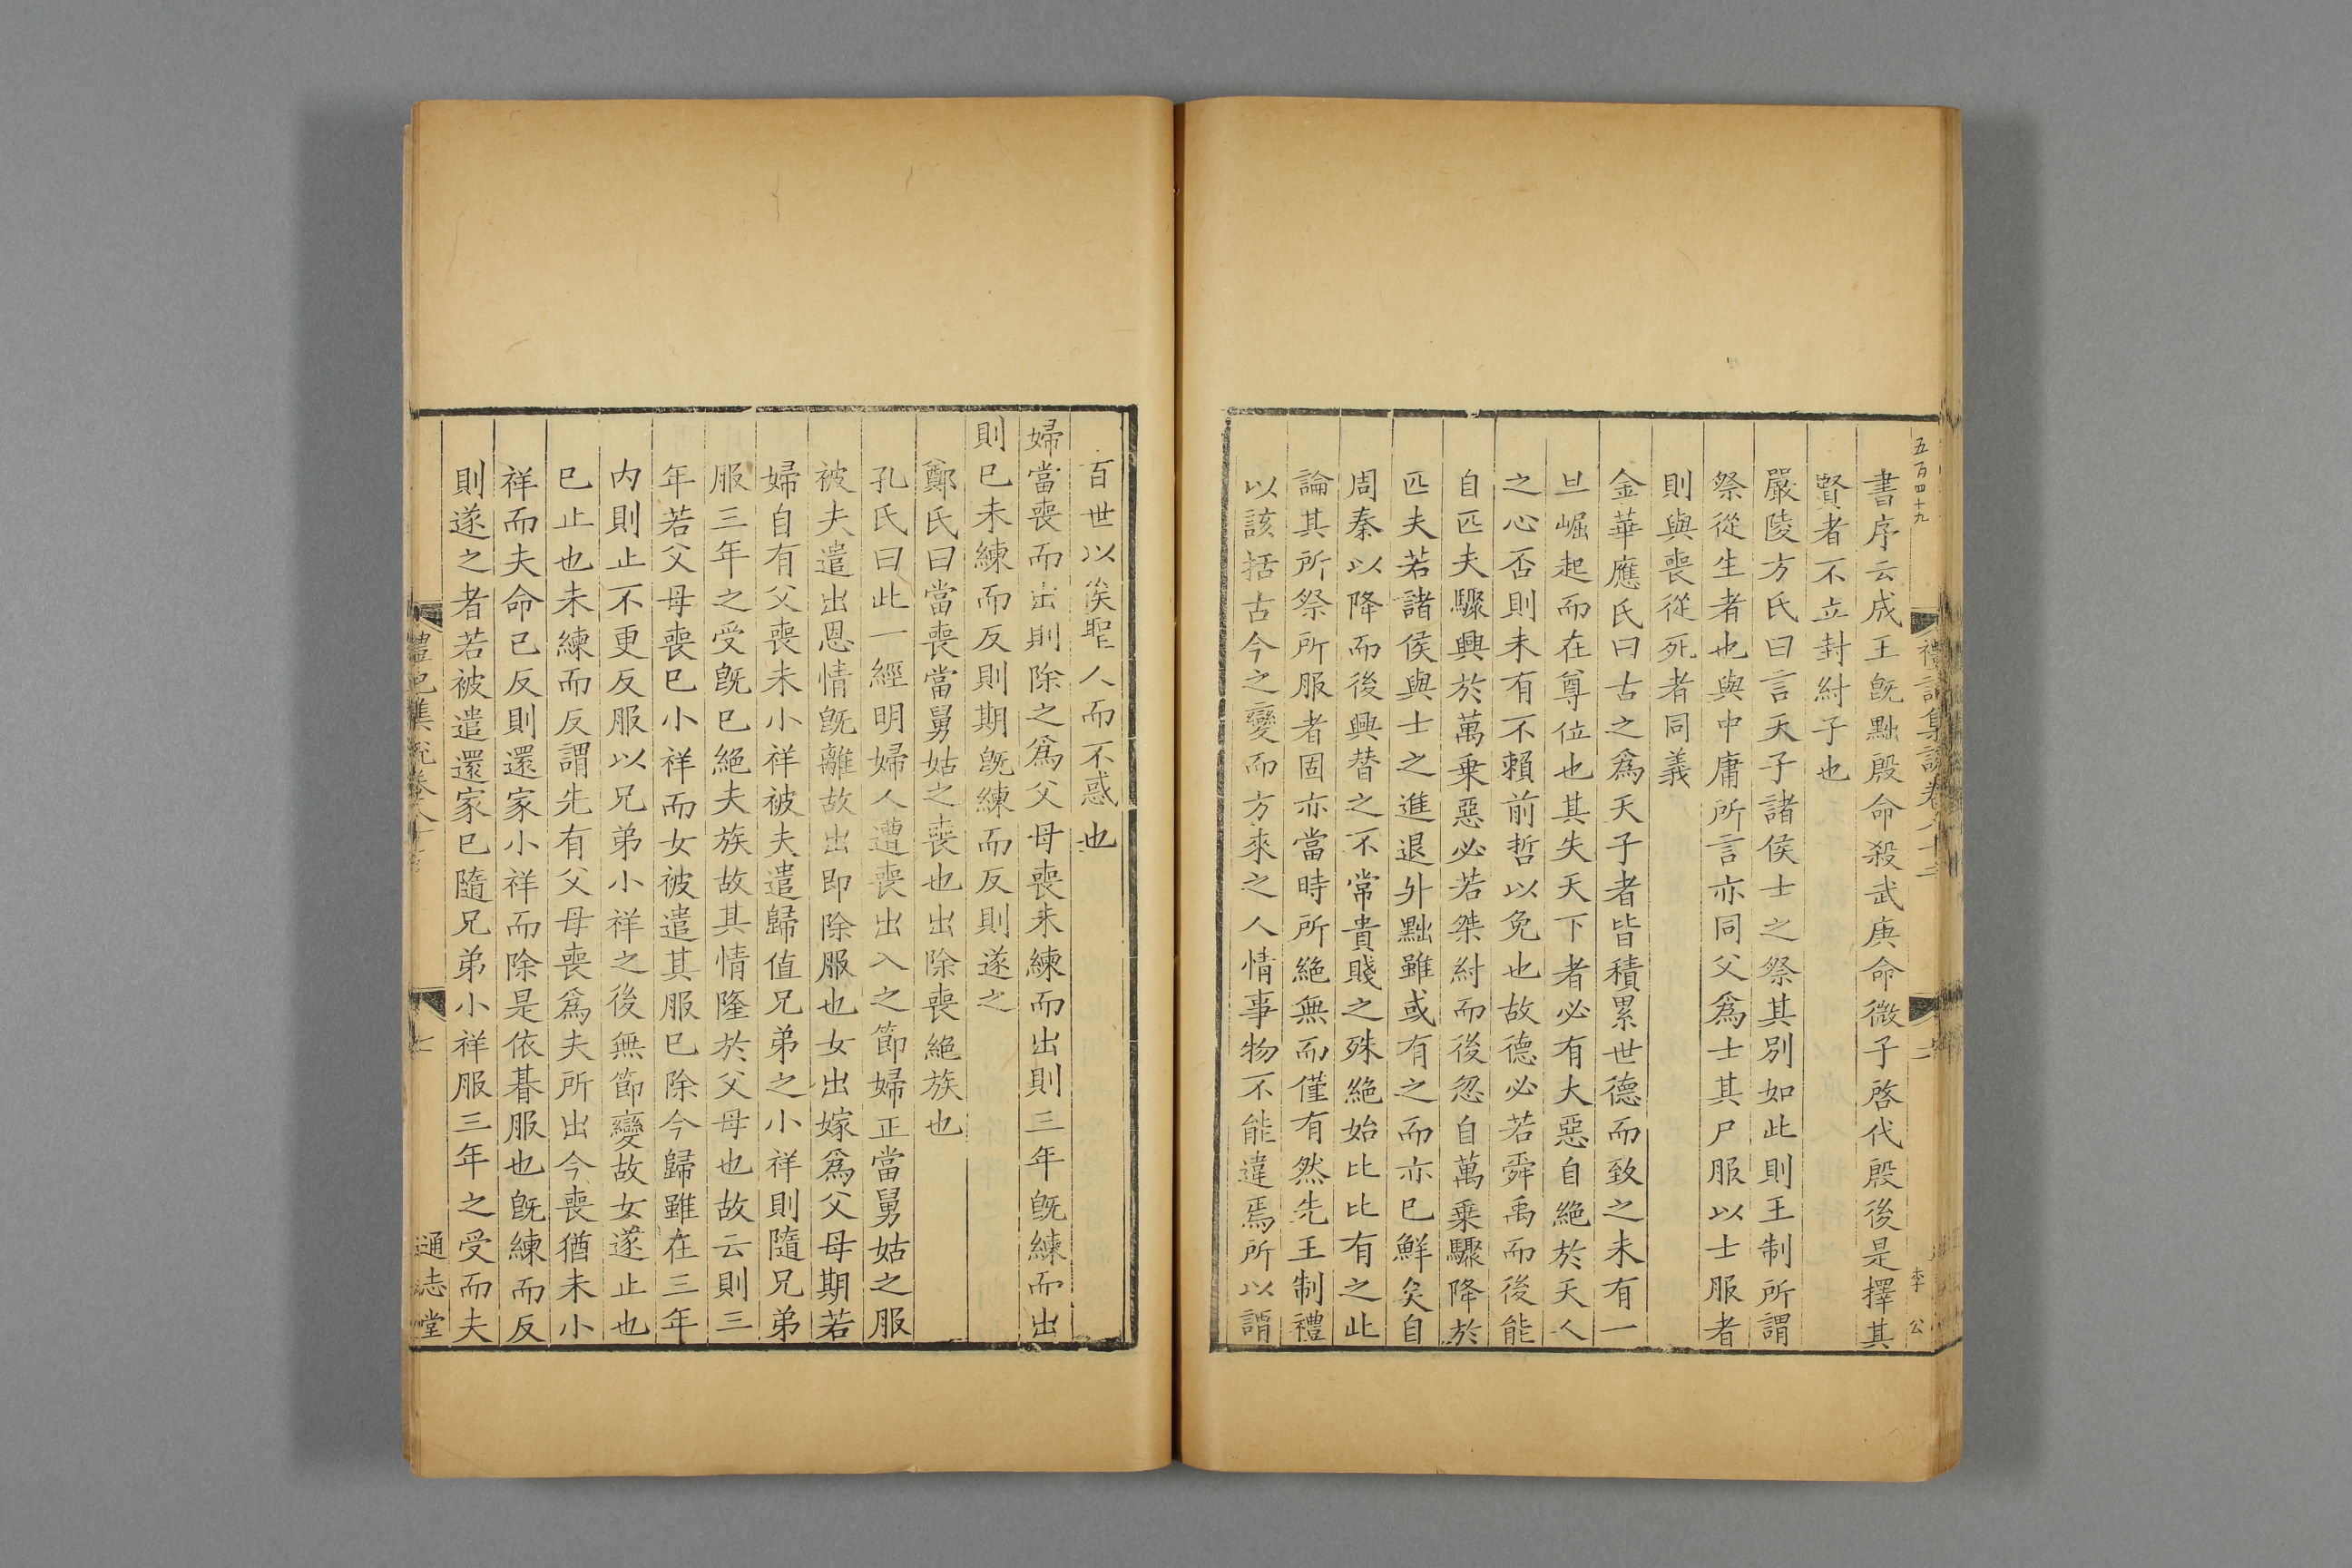 五百四十九
書序云成王旣黜殷命殺武庚命微子啓代殷後是擇其
賢者不立封紂子也
嚴陵方氏曰言天子諸侯士之祭其別如此則王制所謂
祭從生者也與中庸所言亦同父爲士其尸服以士服者
則與喪從死者同義
金華應氏曰古之爲天子者皆積累世德而致之未有一
旦崛起而在尊位也其失天下者必有大惡自絶於天人
之心否則未有不賴前哲以免也故德必若舜禹而後能
自匹夫驟興於萬乗惡必若桀紂而後忽自萬乗驟降於
匹夫若諸侯與士之進退外黜雖或有之而亦巳鮮矣自
周秦以降而後興替之不常貴賤之殊絶始比比有之此
論其所祭所服者固亦當時所絶無而僅有然先王制禮
以該括古今之變而方來之人情事物不能違焉所以謂
百世以俟聖人而不惑也
婦當喪而出則除之爲父母喪未練而出則三年旣練而出
則巳未練而反則期旣練而反則遂之
鄭氏曰當喪當舅姑之喪也出除喪絶族也
孔氏曰此一經明婦人遭喪出入之節婦正當舅姑之服
被夫遣出恩情旣離故出即除服也女出嫁爲父母期若
婦自有父喪未小祥被夫遣歸值兄弟之小祥則隨兄弟
服三年之受旣巳絶夫族故其情隆於父母也故云則三
年若父母喪巳小祥而女被遣其服巳除今歸雖在三年
内則止不更反服以兄弟小祥之後無節變故女遂止也
巳止也未練而反謂先有父母喪爲夫所出今喪猶未小
祥而夫命己反則還家小祥而除是依朞服也旣練而反
則遂之者若被遣還家巳隨兄弟小祥服三年之受而夫
通志堂